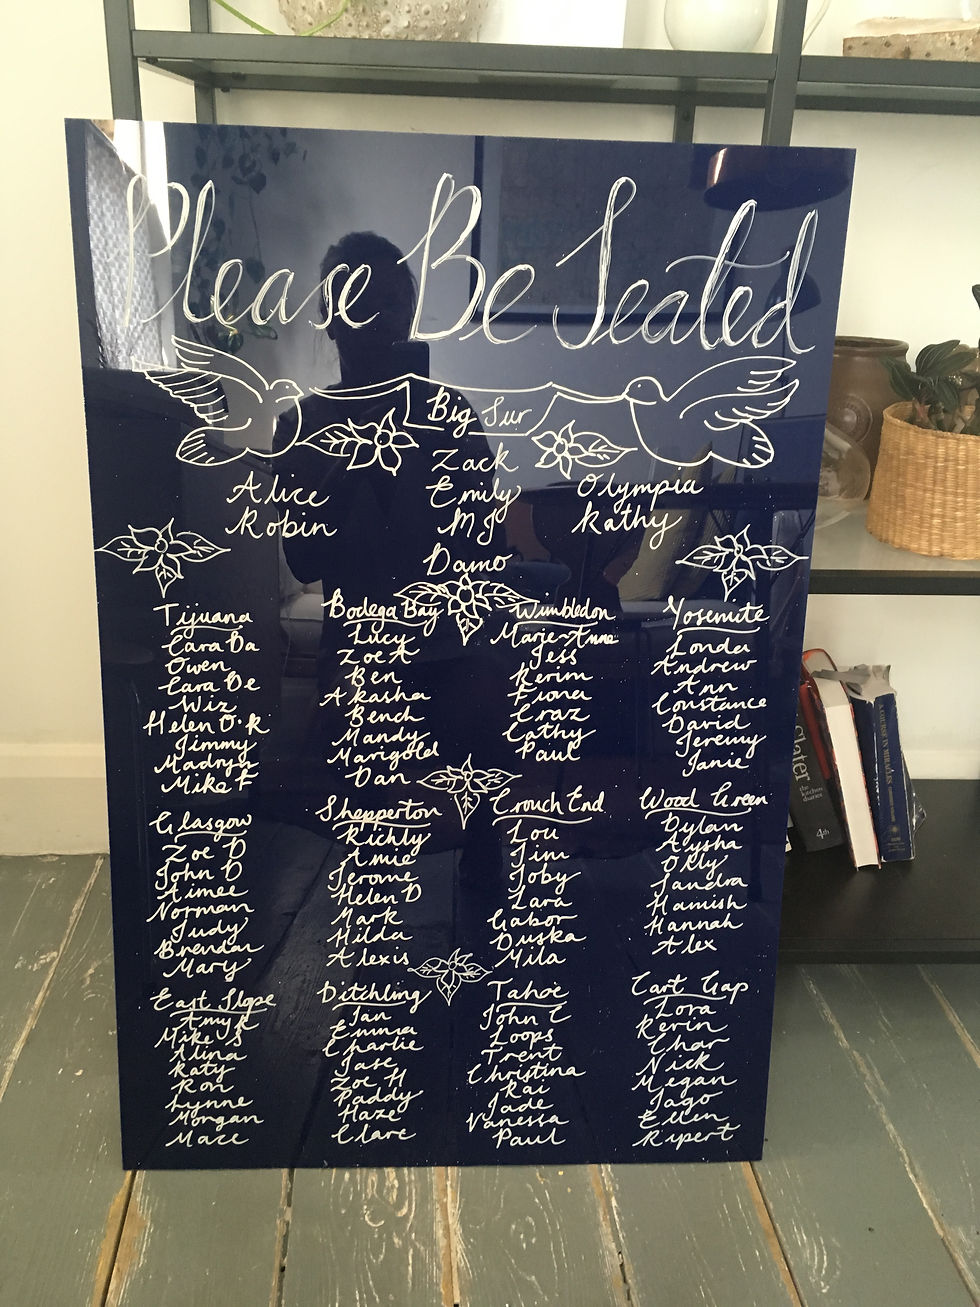 Please Be Seated
Big Sur
Alice
Robin
Zack
Emily
MJ
Damo
Olympia
Kathy
Tijuana
Cara Da
Owen
Cara De
Wiz
Helen O.R
Jimmy
Madryn
Mike F
Bodega Bay
Lucy
Zoe A
Ben
Akasha
Bench
Mandy
Marigold
Dan
Wimbledon
Marie-Anne
Jess
Kerim
Fiona
Craz
Cathy
Paul
Yosemite
Londa
Andrew
Ann
Constance
David
Jeremy
Janie
Glasgow
Zoe D
John D
Aimee
Norman
Judy
Brendan
Mary
Shepperton
Richly
Amie
Jerome
Helen D
Mark
Hilda
Alexis
Crouch End
Lou
Jim
Toby
Lara
Gabor
Duska
Mila
Wood Green
Dylan
Alysha
Olly
Sandra
Hamish
Hannah
Alex
East Slope
Amy R
Mike S
Alina
Katy
Ron
Lynne
Morgan
Mace
Ditchling
Ian
Emma
Charlie
Jase
Zoe H
Paddy
Haze
Clare
Tahoe
John C
Loops
Trent
Christina
Kai
Jade
Vanessa
Paul
Cart Gap
Lora
Kerin
Char
Nick
Megan
Jago
Ellen
Rupert
Slater
the kitchen diaries
4th
A COURSE IN MIRACLES